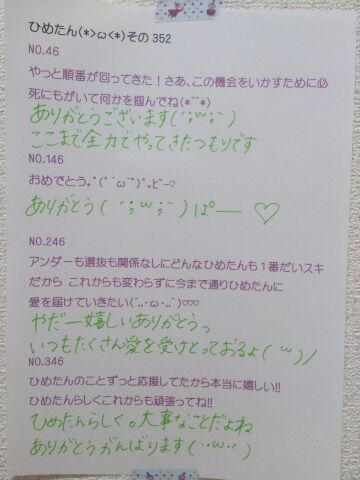 ひめたん(*>ω<*)その352
NO.46
やっと順番が回ってきた！さあ、この機会をいかすために必
死にもがいて何かを掴んでね(*^^*)
ありがとうございます(´;ω;`)
ここまで全力でやってきたつもりです
NO.146
おめでとう｡ﾟ(ﾟ´ω`ﾟ)ﾟ｡ﾋﾟｰ♡
ありがとう(´;ω;`)ぱー ♡
NO.246
アンダーも選抜も関係なしにどんなひめたんも１番だいスキ
だから これからも変わらずに今まで通りひめたんに
愛を届けていきたい(´,,･ω･,,`)♡♡♡
やだー嬉しいありがとうっ
いつもたくさん愛を受けとっておるよ( ˘ω˘)ノ
NO.346
ひめたんのことずっと応援してたから本当に嬉しい!!
ひめたんらしくこれからも頑張ってね!!
ひめたんらしく。大事なことだよね
ありがとうがんばります(｀･ω･´)